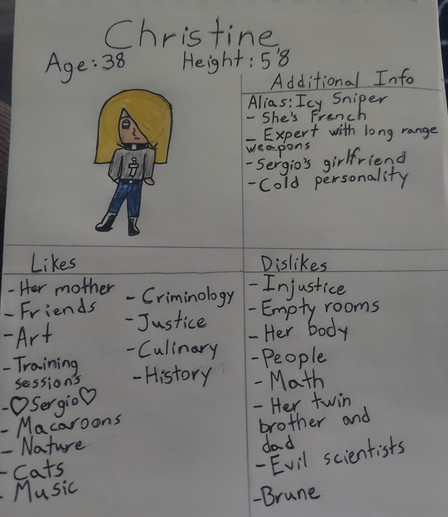 Christine
Age: 38 Height: 5'8
Additional Info
Alias: Icy Sniper
- She's French
- Expert with long range
weapons
- Sergio's girlfriend
- Cold personality
Likes
- Her mother
- Friends
- Art
- Training
sessions
- ♡Sergio♡
- Macaroons
- Nature
- Cats
- Music
- Criminology
- Justice
- Culinary
- History
Dislikes
- Injustice
- Empty rooms
- Her body
- People
- Math
- Her twin
brother and
dad
- Evil scientists
- Brune